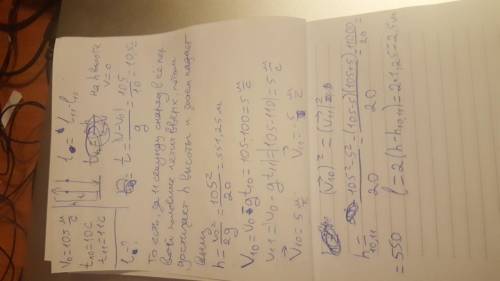 V₀=105 м/с
t₁₀=10с
t₁₁=11с
l-?
на h высоте
V=0
t = (V-V₀)/g = 105/10 = 10,5с
То есть, за 11 секунду снаряд в первой
половине летит вверх, потом
достигает h высоты и затем падает
вниз
h = V₀²/2g = 105²/20 = 551,25 м
V₁₀=V₀-gt₁₀=105-100=5 м/с
V₁₁=V₀-gt₁₁=|105-110|=5 м/с
V₁₀=5 м/с V₁₁=-5 м/с
(V₁₀)²=(V₁₁)²
h₁₀,₁₁ = 105²-5²/20 = (105-5)(105+5)/20 = 11000/20 =
=550 l=2(h-h₁₀,₁₁)=2*1,25=2,5м